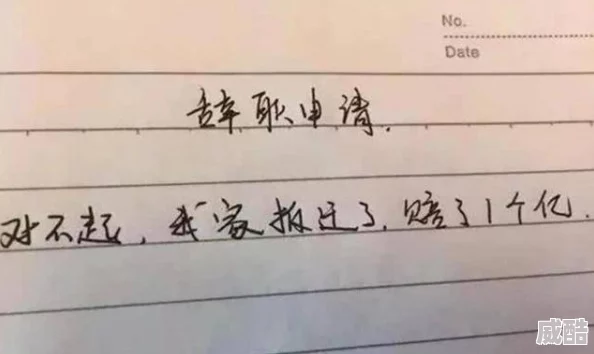 No.
Date
辞职申请.
对不起，我家拆迁了，赔了1个亿.
威酷